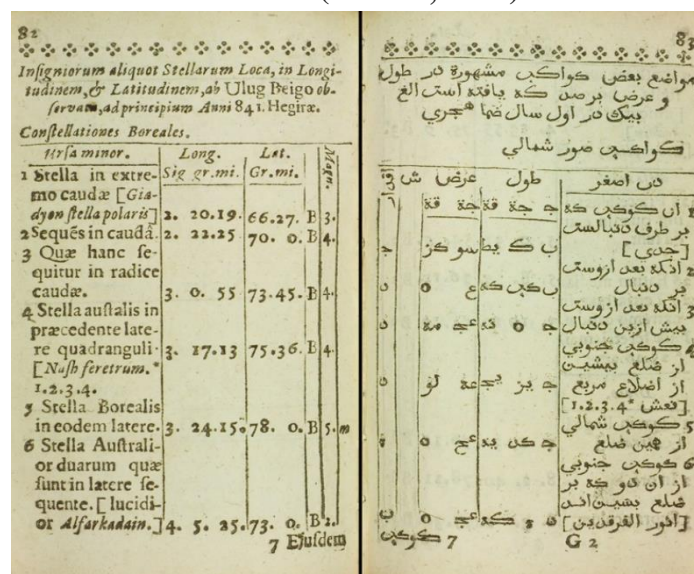 82
Insigniorum aliquot Stellarum Loca, in Longi-
tudinem, & Latitudinem, ab Ulug Beigo ob-
servata, ad principium Anni 841. Hegiræ.
Constellationes Boreales.
Ursa minor. Long. Lat. Magn.
1 Stella in extre- Sig gr. mi. Gr. mi.
mo caudæ [Gia-
dyon stella polaris] 2. 20.19. 66.27. B 3.
2 Sequēs in caudâ. 2. 22.25 70. 0. B 4.
3 Quæ hanc se-
quitur in radice
caudæ. 3. 0. 55 73.45. B 4.
4 Stella australis in
præcedente late-
re quadranguli. 3. 17.13 75.36. B 4.
[Nash feretrum.*
1.2.3.4.
5 Stella Borealis
in eodem latere. 3. 24.15. 78. 0. B 5. m
6 Stella Australi-
or duarum quæ
sunt in latere se-
quente. [lucidi-
or Alfarkadain.] 4. 5. 25. 73. 0. B 2.
7 Ejusdem
83
مواضع بعض کواکب مشهورة در طول
و عرض برصد که یافته است الغ
بیک در اول سال ضما هجري
کواکب صور شمالي
دب اصغر طول عرض
1 ان کوکب که
بر طرف دنبالست
[جدي] ب ک يط سو کز ج
2 انکه بعد ازوست
بر دنبال ب کب که ع ه د
3 انکه بعد ازوست
بیش ازین دنبال ج ه نه عج مه د
4 کوکب جنوبي
از ضلع بیشین
از اضلاع مربع ج یز یج عه لو د
[نعش * 1.2.3.4]
5 کوکب شمالي
از همین ضلع ج کد یه عح ه
6 کوکب جنوبي
از ان دو که بر
ضلع بسین اند
[انور الفرقدین] د ه که عج ه ب
7 کوکب
G 2